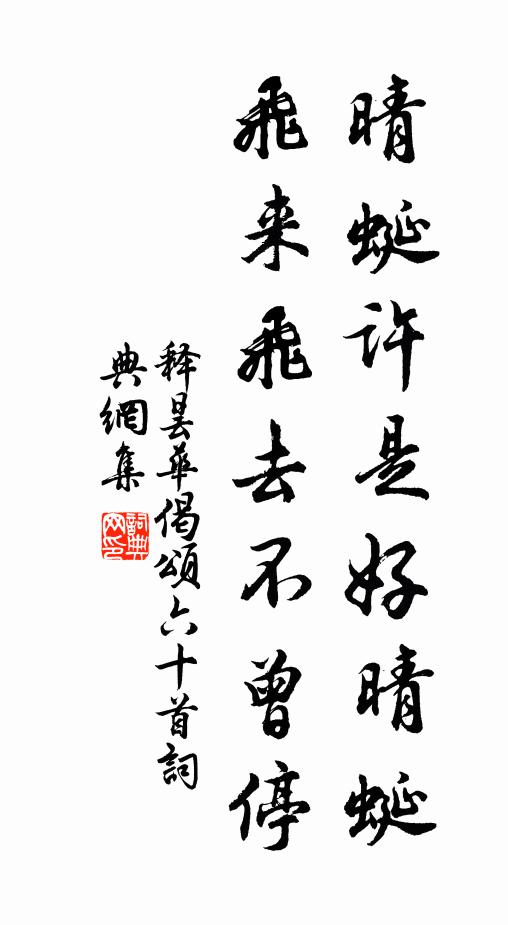 晴蜒许是好晴蜒
飛来飛去不曾停
释昙華偈頌六十首詞
典網集
詞典
网印